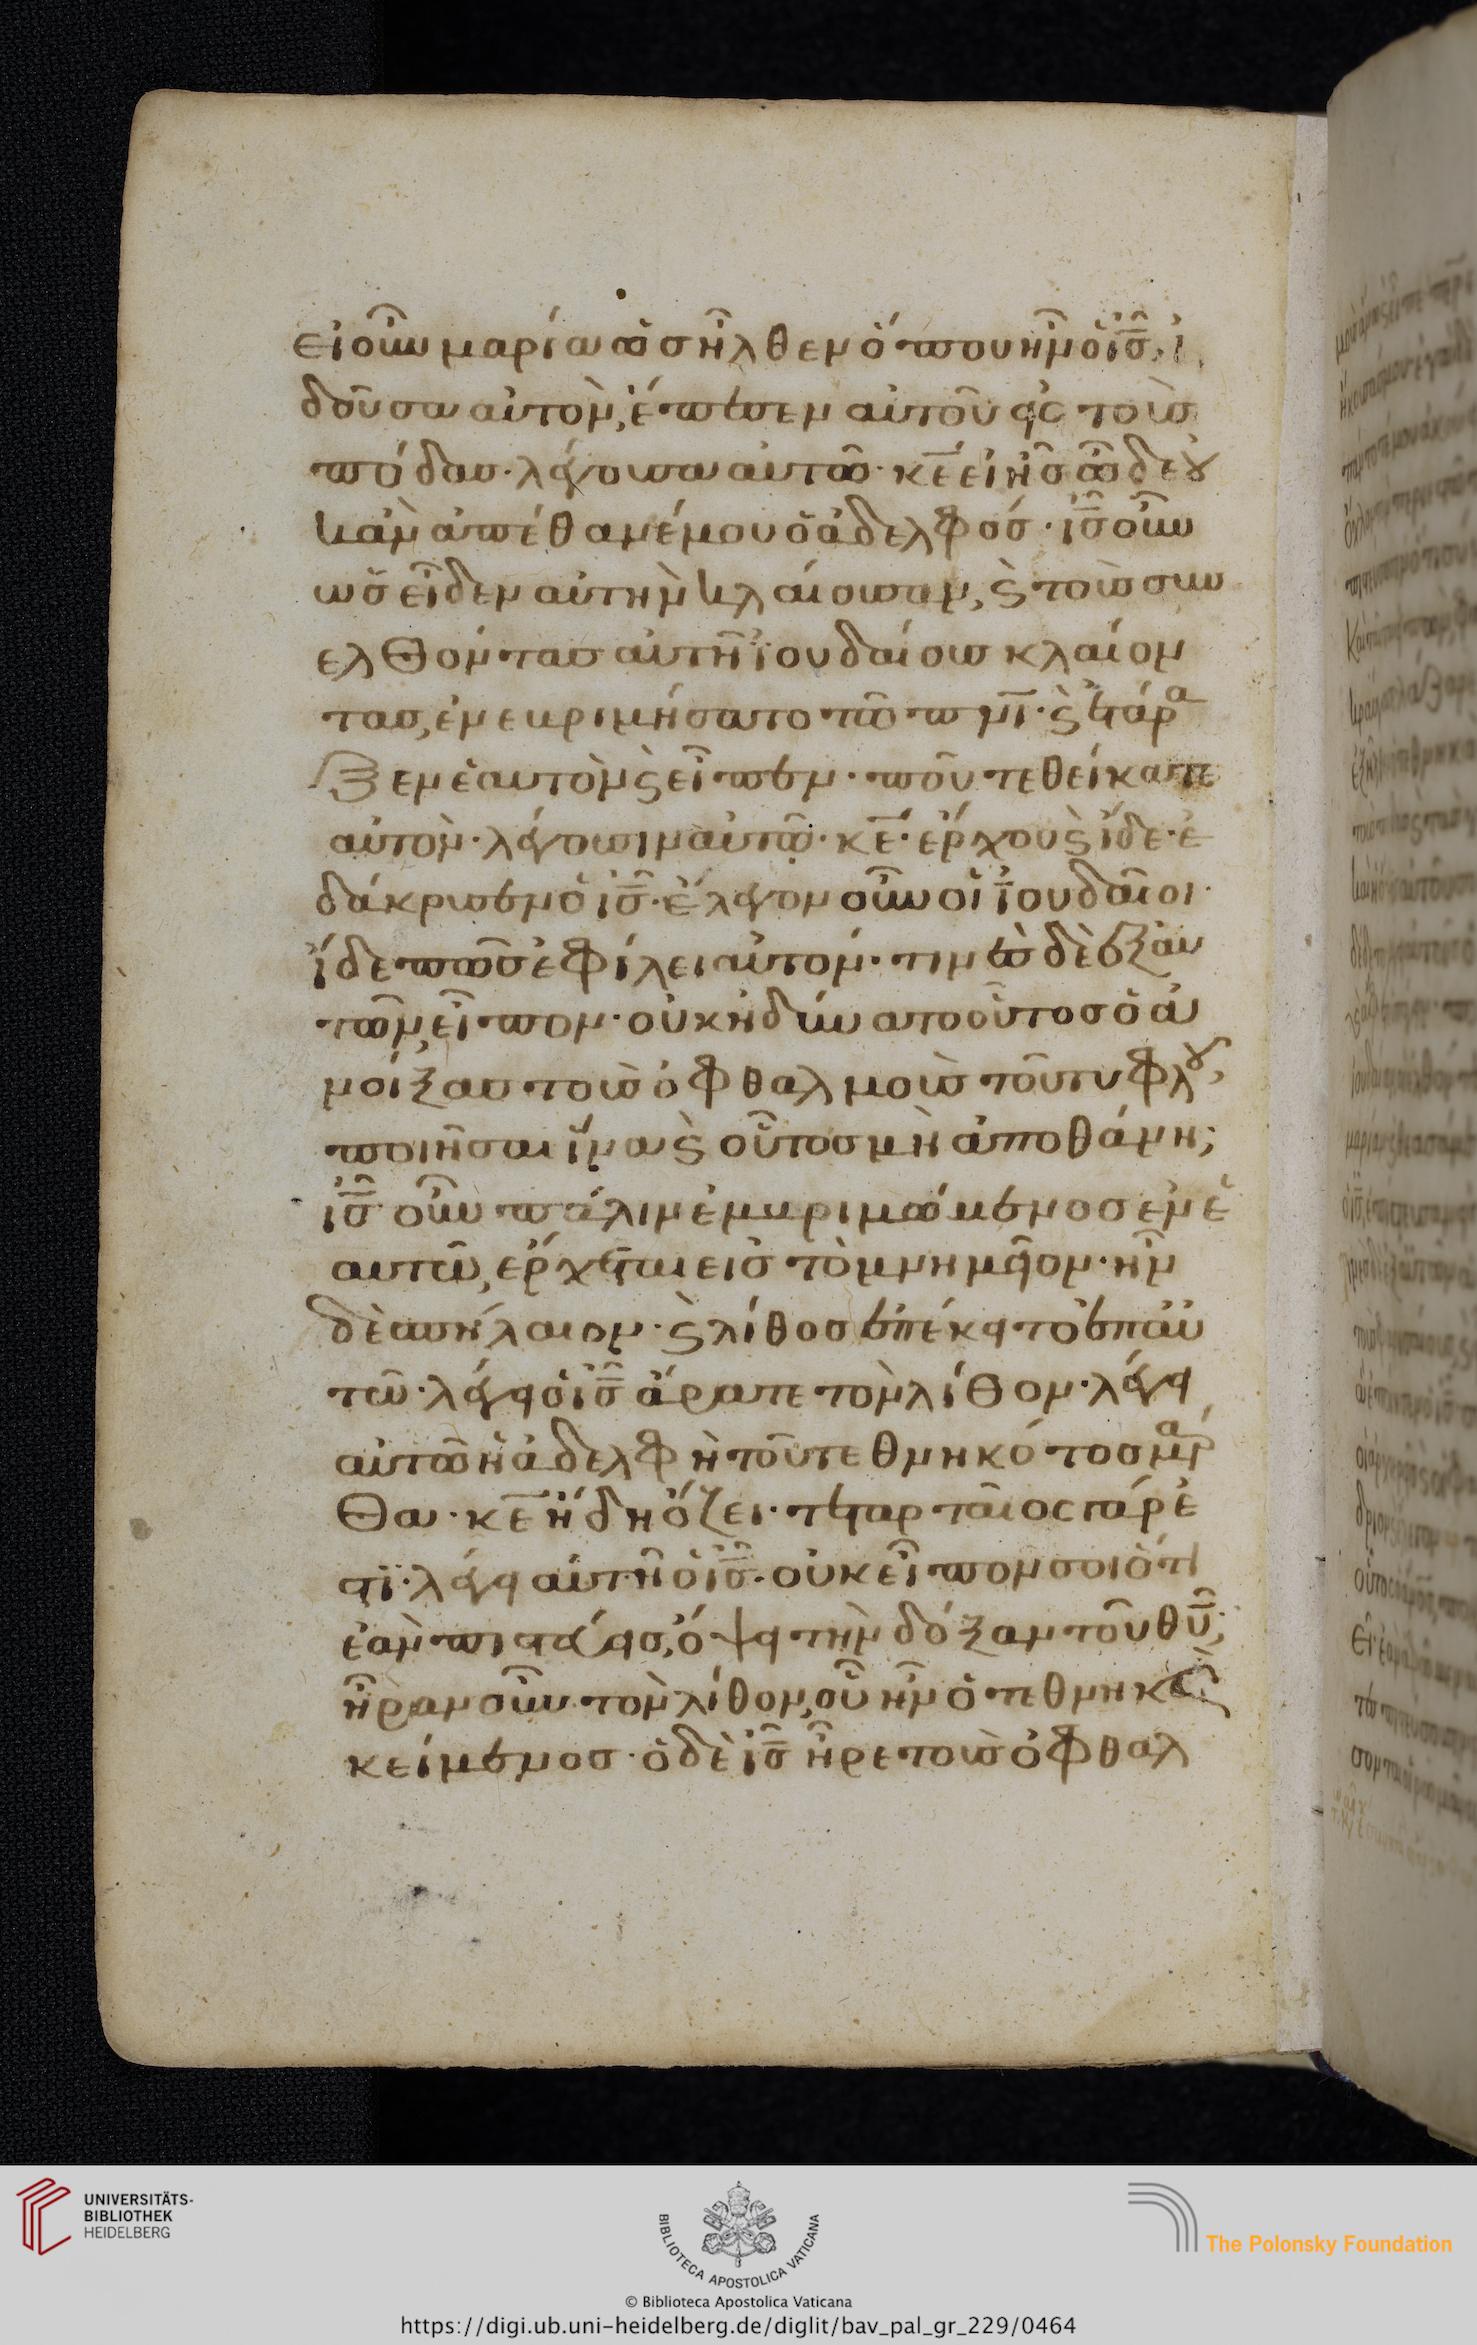 ει οὖν μαρία ὡς ἦλθεν ὅπου ἦν ὁ ἰς̅, ἰ
δοῦσα αὐτὸν, ἔπεσεν αὐτοῦ εἰς τοὺς
πόδας· λέγουσα αὐτῶ· κε̅ εἰ ἦς ὧδε οὐ
κὰν ἀπέθανέ μου ὁ ἀδελφός· ἰς̅ οὖν
ὡς εἶδεν αὐτὴν κλαίουσαν, ϗ τοὺς συν
ελθόντας αὐτῆ ἰουδαίους κλαίον
τας, ἐνεβριμήσατο τῶ πνι̅· ϗ ἐτάρα
ξεν ἑαυτὸν ϗ εἶπεν· ποῦ τεθείκατε
αὐτὸν· λέγουσιν αὐτῶ· κε̅· ἔρχου ϗ ἴδε· ἐ
δάκρυσεν ὁ ἰς̅· ἔλεγον οὖν οἱ ἰουδαῖοι·
ἴδε πῶς ἐφίλει αὐτόν· τινὲς δὲ ἐξ αυ
τῶν, εἶπον· οὐκ ἠδύνατο οὗτος ὁ ἀ
νοίξας τοὺς ὀφθαλμοὺς τοῦ τυφλοῦ,
ποιῆσαι ἵνα ϗ οὗτος μὴ ἀποθάνη;
ἰς̅ οὖν πάλιν ἐμβριμώμενος ἐν ἑ
αυτῶ, ἔρχεται εἰς τὸ μνημεῖον· ἦν
δὲ σπήλαιον· ϗ λίθος ἐπέκειτο ἐπ αὐ
τῶ· λέγει ὁ ἰς̅ ἄρατε τὸν λίθον· λέγει
αὐτῶ ἡ ἀδελφὴ τοῦ τεθνηκότος μάρ
θα· κε̅ ἤδη ὄζει· τεταρταῖος γάρ ἐ
στϊ· λέγει αὐτῆ ὁ ἰς̅· οὐκ εἶπον σοι ὅτι
ἐὰν πιστεύσης, ὄψει τὴν δόξαν τοῦ θυ̅;
ἦραν οὖν τὸν λίθον, οὗ ἦν ὁ τεθνηκὼς
κείμενος· ὁ δὲ ἰς̅ ἦρε τοὺς ὀφθαλ
UNIVERSITÄTS-
BIBLIOTHEK
HEIDELBERG
BIBLIOTECA APOSTOLICA VATICANA
The Polonsky Foundation
© Biblioteca Apostolica Vaticana
https://digi.ub.uni-heidelberg.de/diglit/bav_pal_gr_229/0464